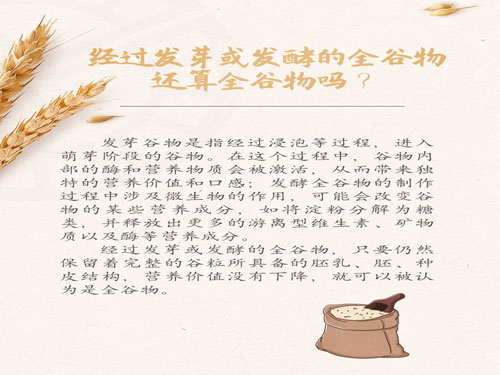 经过发芽或发酵的全谷物
还算全谷物吗？
发芽谷物是指经过浸泡等过程，进入
萌芽阶段的谷物。在这个过程中，谷物内
部的酶和营养物质会被激活，从而带来独
特的营养价值和口感；发酵全谷物的制作
过程中涉及微生物的作用，可能会改变谷
物的某些营养成分，如将淀粉分解为糖
类，并释放出更多的游离型维生素、矿物
质以及酶等营养成分。
经过发芽或发酵的全谷物，只要仍然
保留着完整的谷粒所具备的胚乳、胚、种
皮结构，营养价值没有下降，就可以被认
为是全谷物。